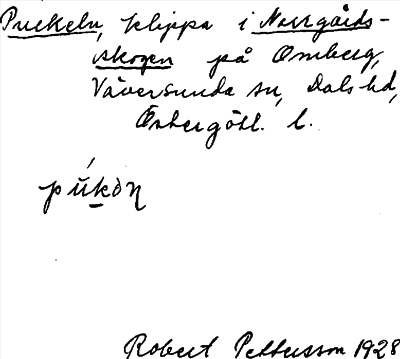 Puckeln, klippa i Norrgårds-
skogen på Omberg,
Väversunda sn, Dals hd,
Östergötl. l.
púkòn
Robert Pettersson 1928